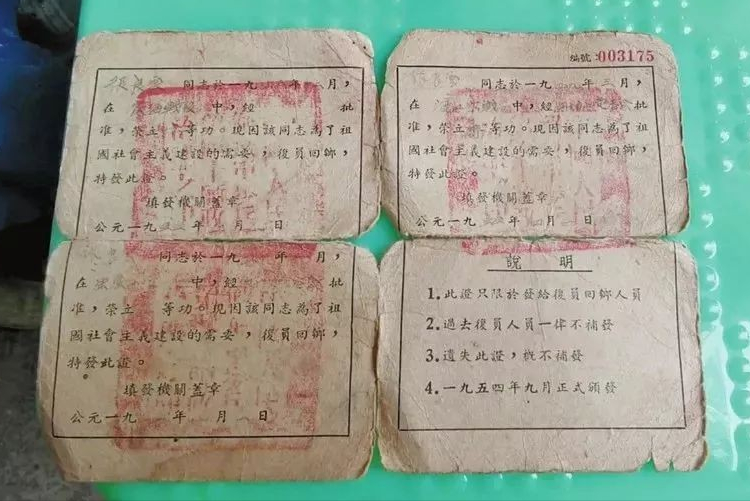 同志於一九　年　月，
在　中，經　批
准，榮立　等功。現因該同志為了祖
國社會主义建設的需要，復員回鄉，
特發此證。
填發機關蓋章
公元一九　年　月　日
编號：003175
同志於一九　年三月，
在　中，經　批
准，榮立　等功。現因該同志為了祖
國社會主义建設的需要，復員回鄉，
特發此證。
填發機關蓋章
公元一九　年　月　日
同志於一九　年　月，
在　中，經　批
准，榮立　等功。現因該同志為了祖
國社會主义建設的需要，復員回鄉，
特發此證。
填發機關蓋章
公元一九　年　月　日
說明
1.此證只限於發給復員回鄉人員
2.過去復員人員一律不補發
3.遺失此證，概不補發
4.一九五四年九月正式頒發